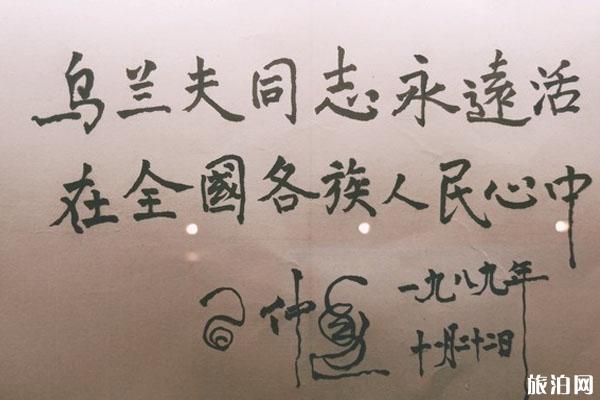 乌兰夫同志永遠活
在全國各族人民心中
仲
一九八九年
十一月二十二日
旅泊网